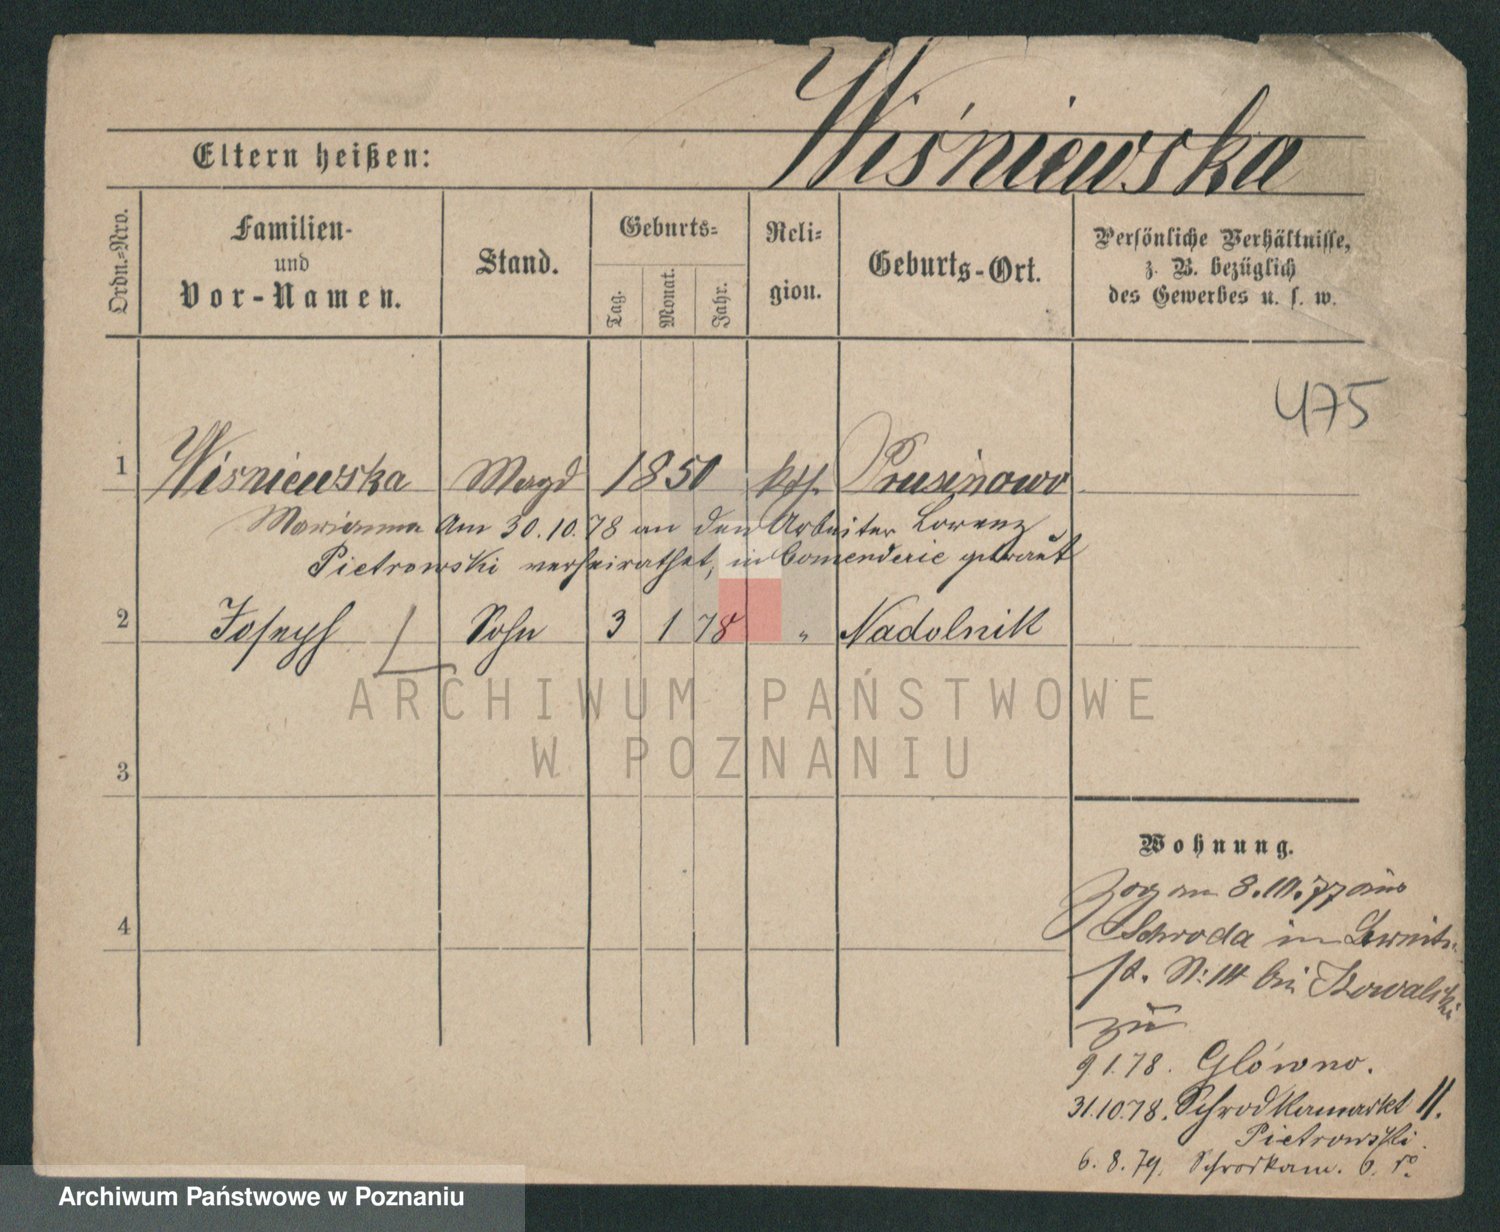 Wiśniewska
Eltern heißen:
Ordn.=Nro.
Familien-
und
Vor-Namen.
Stand.
Geburts=
Tag.
Monat.
Jahr.
Reli=
gion.
Geburts-Ort.
Persönliche Verhältnisse,
z. B. bezüglich
des Gewerbes u. s. w.
475
1 Wisniewska Magd 1850 kth. Prusinowo
Marianna Am 30.10.78 an den Arbeiter Lorenz
Pietrowski verheirathet, in Comenderie getraut
2 Joseph Sohn 3 1 78 " Nadolnik
ARCHIWUM PAŃSTWOWE
W POZNANIU
3
4
Wohnung.
Zog am 8.10.77 aus
Schroda in
st. N: bei Kowalski
zu
9.1.78. Główno.
31.10.78. Schrodkamarkt 11.
Pietrowski.
6. 8. 79. Schrodkam. 6.
Archiwum Państwowe w Poznaniu